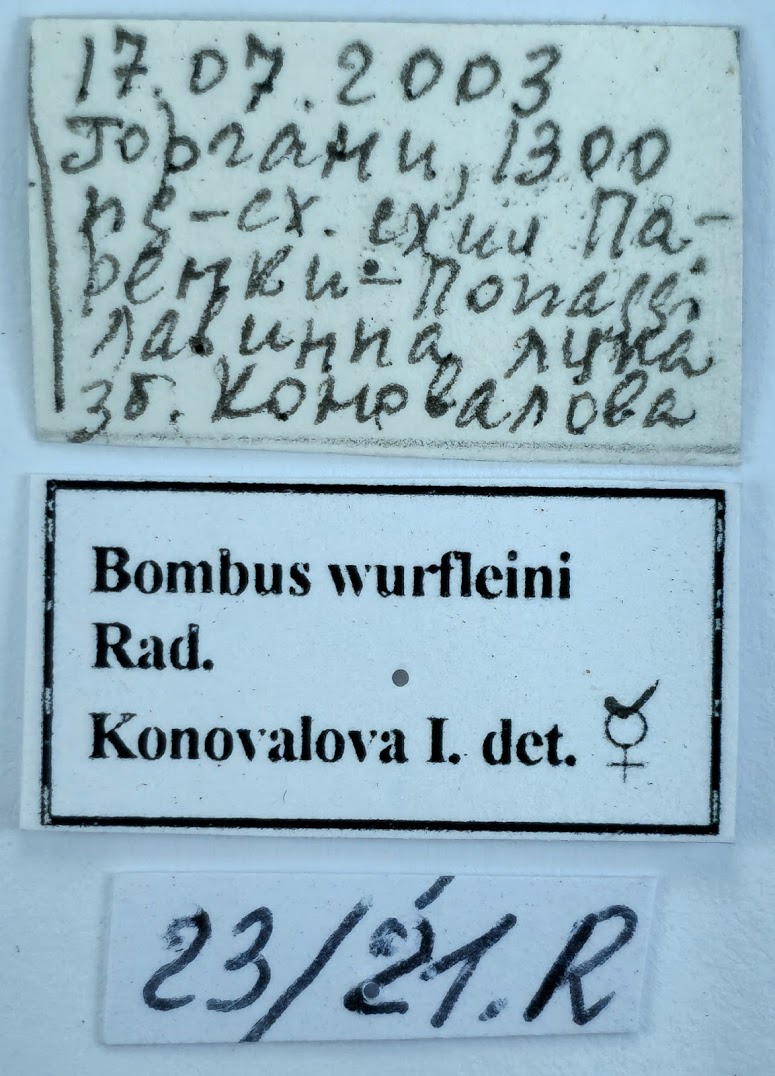 17.07.2003
Горгани, 1300
пс-сх. схил Па-
ренки-Попаді
лавинна лука
зб. Коновалова
Bombus wurfleini
Rad.
Konovalova I. det. ☿
23/21.R